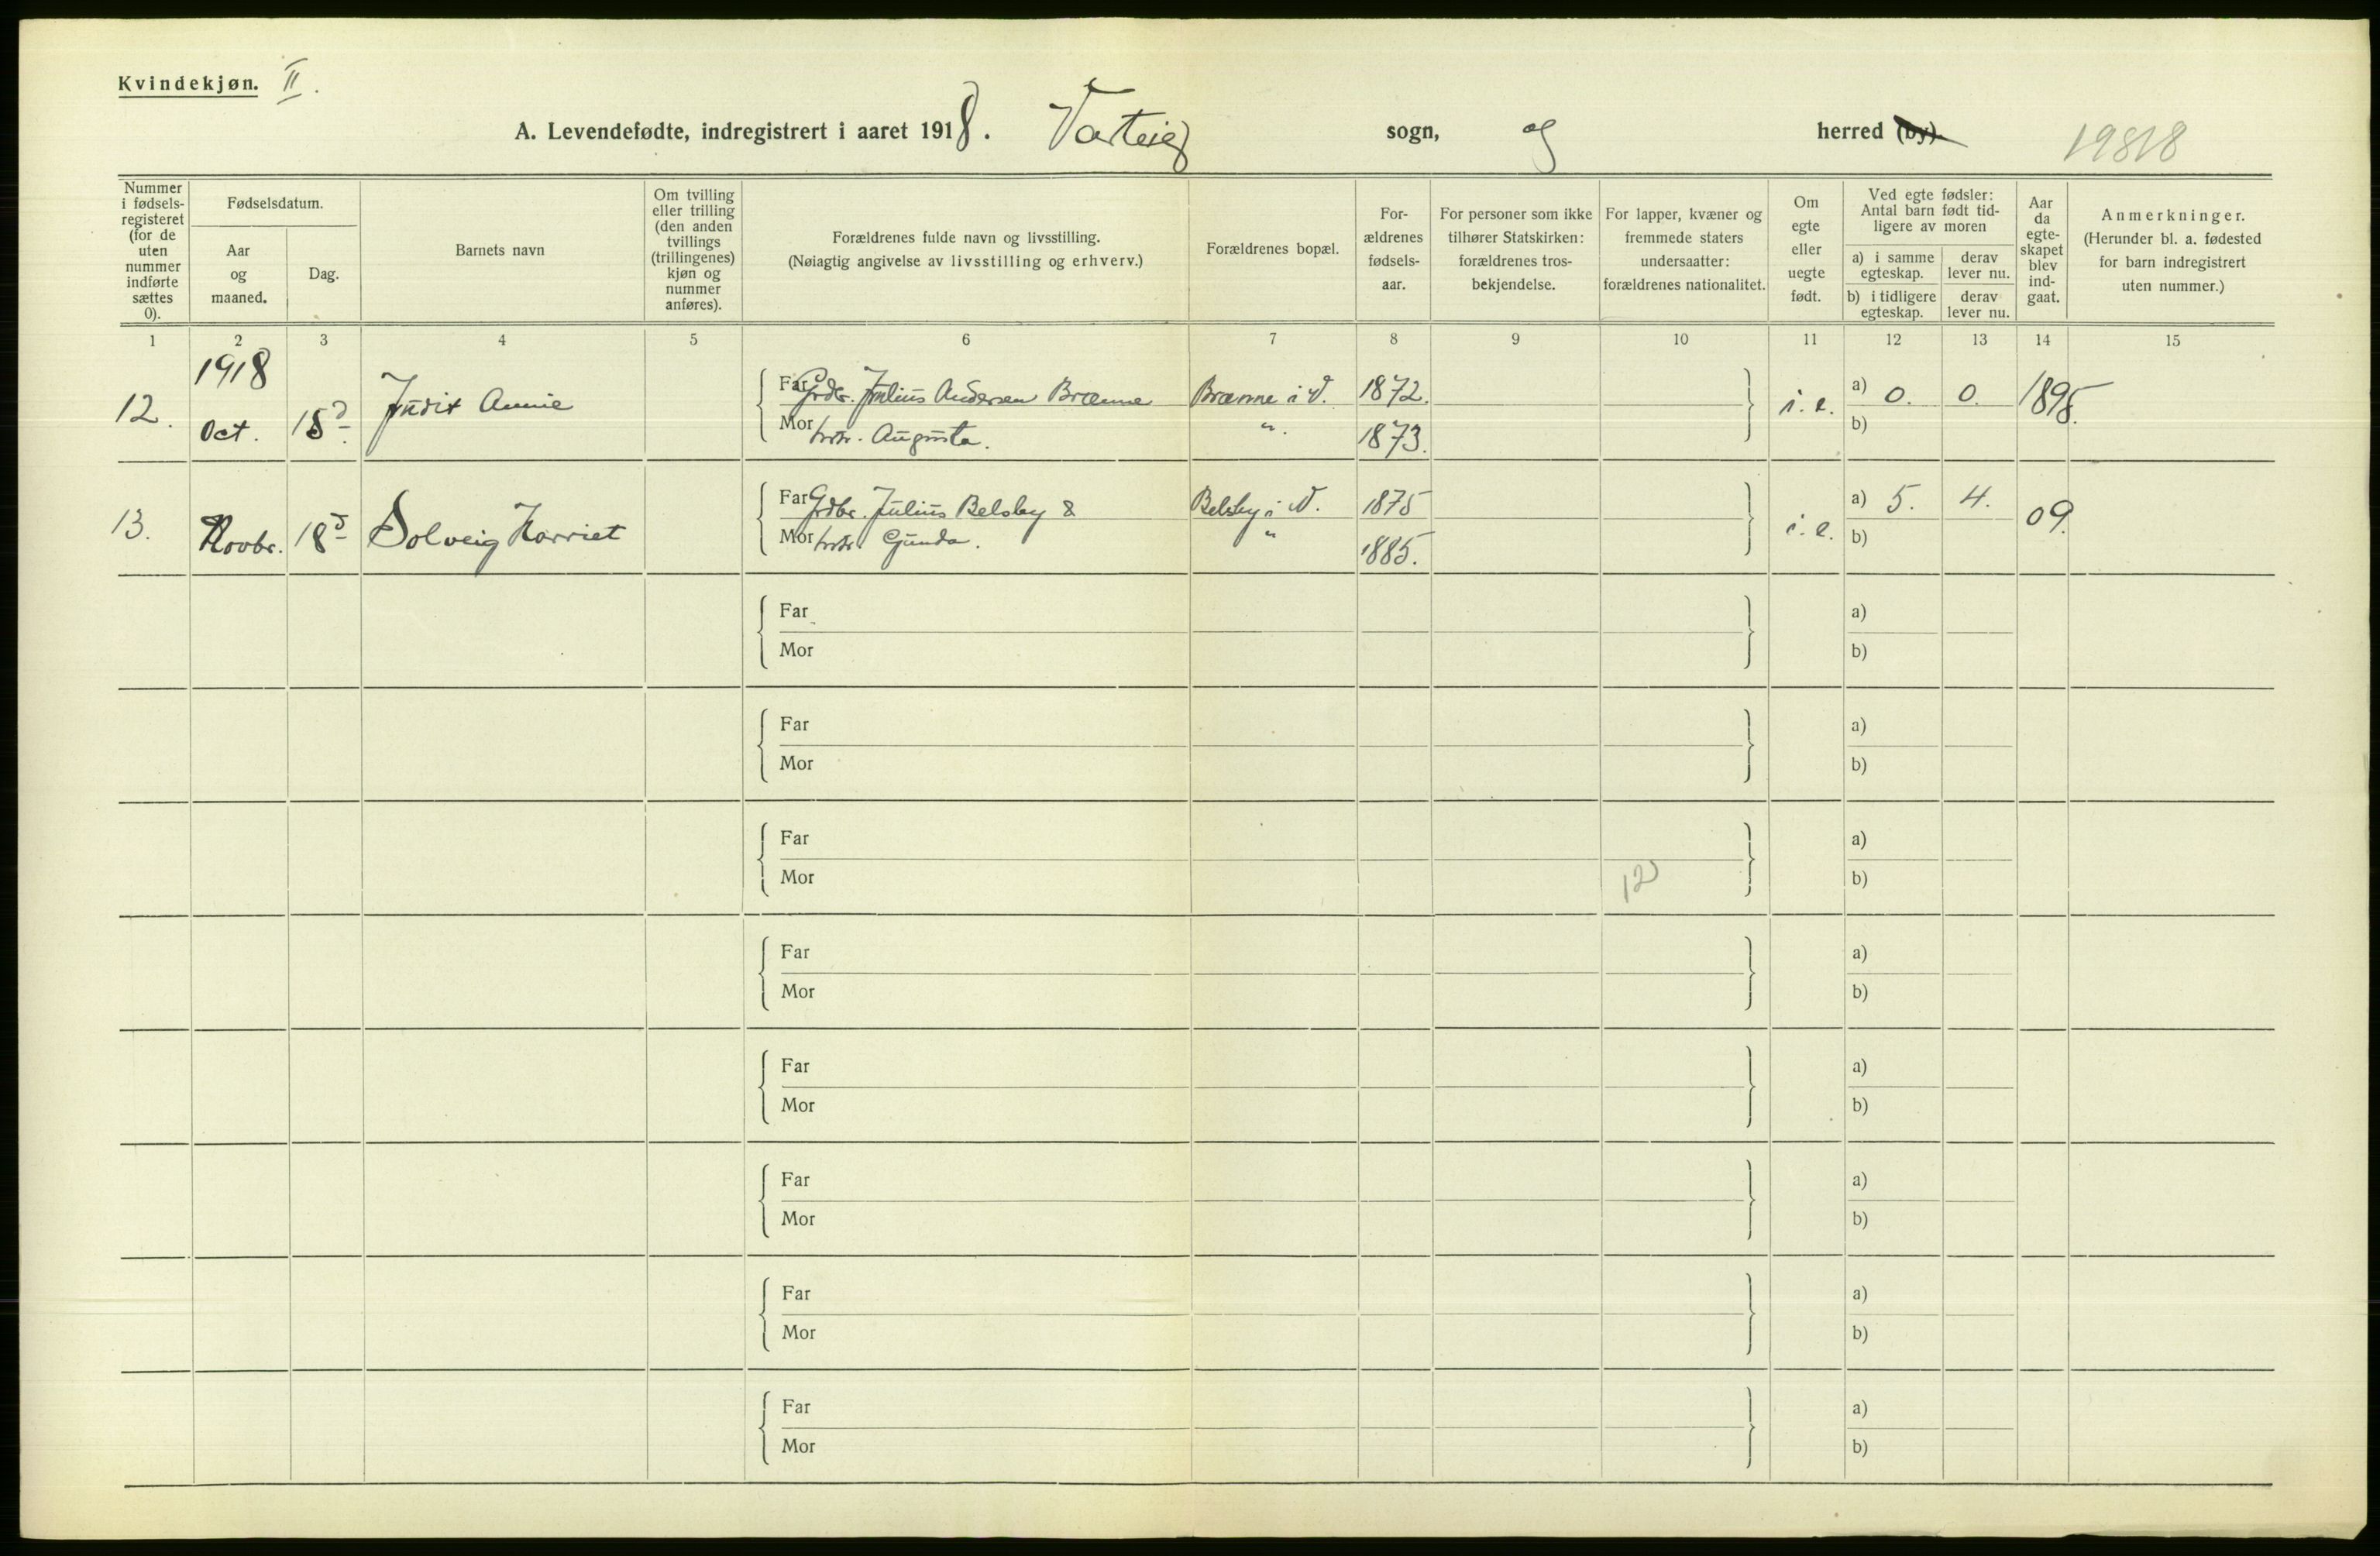 Kvindekjøn. II.
A. Levendefødte, indregistrert i aaret 1918. Varteig sogn, og herred (by).
Nummer i fødsels-registeret (for de uten nummer indførte sættes 0).
Fødselsdatum.
Aar og maaned.
Dag.
Barnets navn
Om tvilling eller trilling (den anden tvillings (trillingenes) kjøn og nummer anføres).
Forældrenes fulde navn og livsstilling.
(Nøiagtig angivelse av livsstilling og erhverv.)
Forældrenes bopæl.
For-ældrenes fødsels-aar.
For personer som ikke tilhører Statskirken: forældrenes tros-bekjendelse.
For lapper, kvæner og fremmede staters undersaatter: forældrenes nationalitet.
Om egte eller uegte født.
Ved egte fødsler: Antal barn født tid-ligere av moren
a) i samme egteskap.
derav lever nu.
b) i tidligere egteskap.
derav lever nu.
Aar da egte-skapet blev ind-gaat.
Anmerkninger.
(Herunder bl. a. fødested for barn indregistrert uten nummer.)
1 2 3 4 5 6 7 8 9 10 11 12 13 14 15
1918
12. Oct. 18d Judit Annie Far Grdbr. Julius Andersen Brænne Brænne i V. 1872. i. e. a) 0. 0. 1898.
Mor hstr. Augusta. ". 1873. b)
13. Novbr. 18d Solveig Harriet Far Grdbr. Julius Belsby & Belsby i V. 1875 i. e. a) 5. 4. 09.
Mor hstr. Gunda. " 1885. b)
Far a)
Mor b)
Far a)
Mor b)
Far a)
Mor 12 b)
Far a)
Mor b)
Far a)
Mor b)
Far a)
Mor b)
Far a)
Mor b)
Far a)
Mor b)